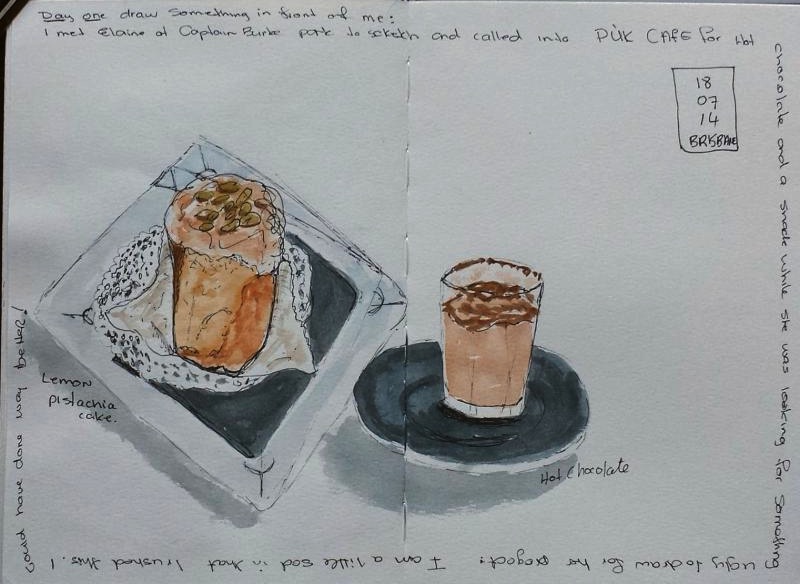 Day one draw something in front of me:
I met Elaine at Captain Burke park to sketch and called into PÜK CAFE for Hot
chocolate and a snack while she was looking for something
ugly to draw for her project. I am a little sad in that I rushed this. I
could have done way better!
18
07
14
BRISBANE
Lemon
pistachia
cake.
Hot Chocolate